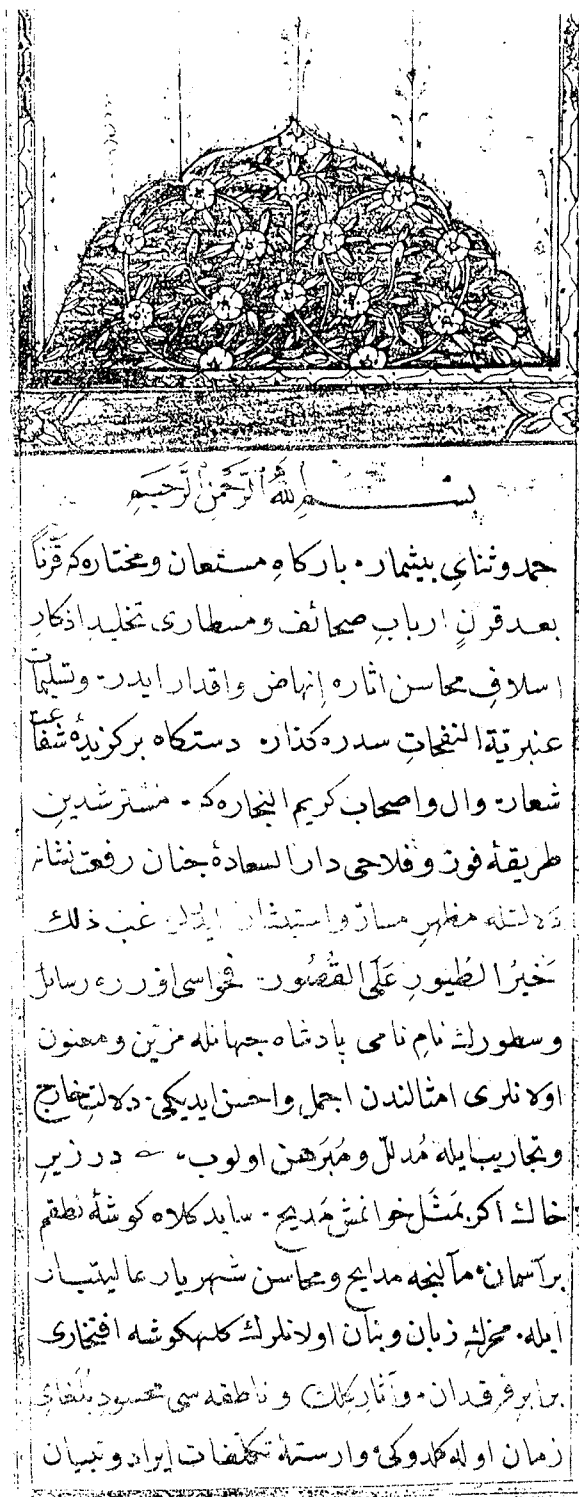 بسم الله الرحمن الرحيم
حمد وثنای بیشمار بارکاه مستعان ومختاره که قرناً
بعد قرنٍ ارباب صحائف ومسطاری تخلید اذکار
اسلاف محاسن آثاره اِنهاض واقدار ایدر وتسلیمات
عنبریّة النفحاتِ سدره کذار دستکاه برکزیدۀ شفاعت
شعار وآل واصحاب کریم النجاره که مسترشدین
طریقۀ فوز وفلاحی دار السعادۀ جنان رفعت نشانه
دلالتله مظهر مسارّ واستبشار ایلر غب ذلك
خَیرُ الطُیورِ عَلَی القُصُور فحواسی اوزره رسائل
وسطورك نام نامی پادشاه جهانله مزیّن ومعنون
اولانلری امثالندن اجمل واحسن ایدیکی دلالتِ خارج
وتجاریب ایله مُدلّل ومُبَرهن اولوب در زیرِ
خاك اکر بمَثَل خوانمش مَدیح ساید کلاه کوشۀ نطقم
برآسمان مآلنجه مدایح ومحاسن شهریار عالیتبار
ایله محرّك زبان وبنان اولانلرك کلهکوشه افتخاری
برابرِ فرقدان وآثار کلك وناطقه سی محسود بلغای
زمان اوله کلدوکی وارستۀ تکلفات ایراد وتبیان